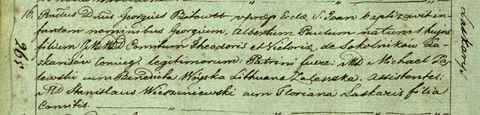 16. Pnctus Dnus Georgius Batowtt v prefp Eccle S. Joan baptizavit in-
fantem nominibus Georgium, Albertum Paulum natum 1 hujus
filium Comitum Theodoris et Victoria de Sokolnikow La-
skariow Coniug. legitimorum. Patrini fuere: Md Michael Za-
lewski cum Benedicta Woyska Lithuana Zalewska. Assistentes:
Md Stanislaus Wieszeniewski cum Floriana Laskaris filia
Comitis.
Laskarys
265